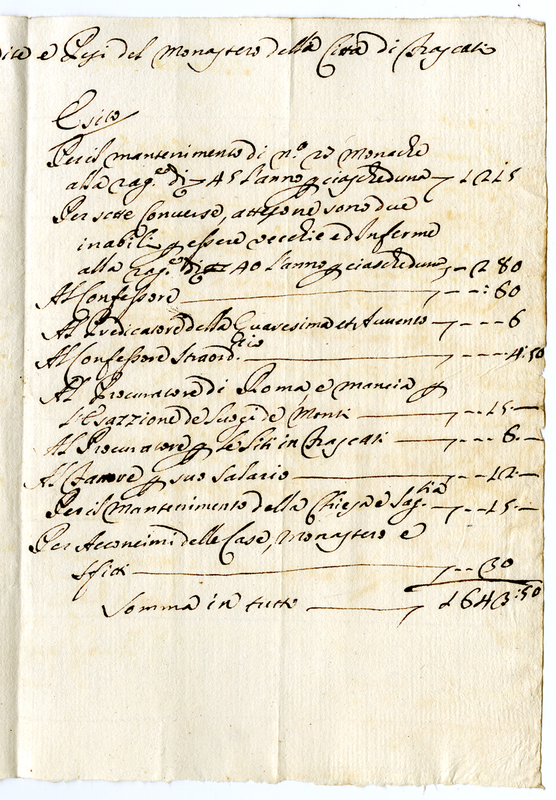 dite e Pesi del Monastero della Città di Frascati
Esito
Per il mantenimento di n.º 27 Monache
alla rag.e di 45 l'anno p ciascheduna — 1215
Per sette Converse, attesone sono due
inabili p essere vecchie ed Inferme
alla rag.e di 40 l'anno p ciascheduna — 280
Al Confessore — : 60
Al Predicatore della Quaresima et Avvento — 6
Al Confessore Straord.rio — 4:50
Al Procuratore di Roma e mancia p
l'Esazzione de Luoghi de Monti — 15 —
Al Procuratore p le liti in Frascati — 6 —
Al Fattore p suo salario — 12 —
Per il Mantenimento della Chiesa e Sag.tia — 15 —
Per Acconcimi delle Case, Monastero e
sfitti — 30
Somma in tutto — 1643:50